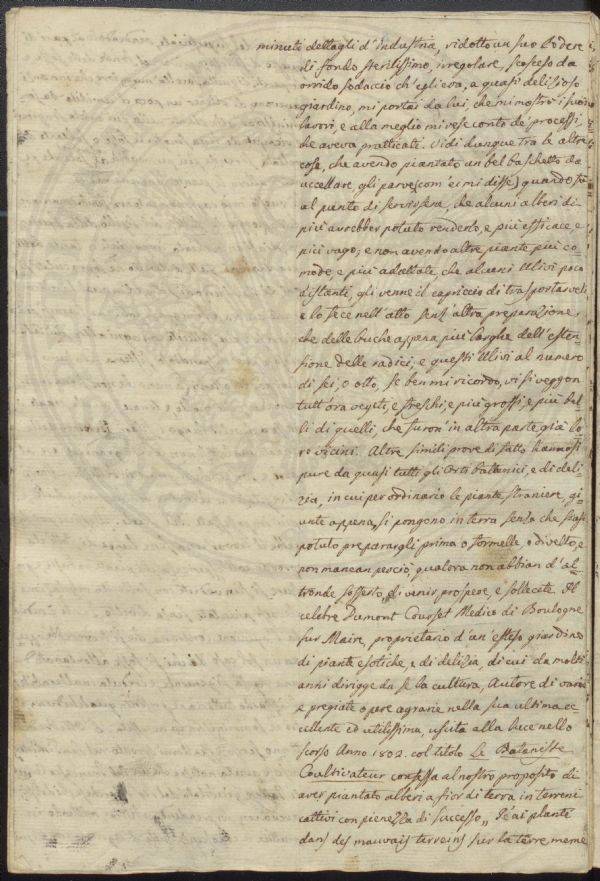 minuti dettagli d'industria, ridotto un suo Podere
di fondo sterilissimo, irregolare, scosceso da
orrido sodaccio ch'egli era, a quasi delizioso
giardino, mi portai da lui, che mi mostrò i suoi
lavori, e alla meglio mi rese conto de' processi
che aveva pratticati. Vidi dunque tra le altre
cose, che avendo piantato un bel boschetto da
uccellare, gli parve (com'ei mi disse) quando fu
al punto di servirsene, che alcuni alberi di
più avrebber potuto renderlo, e più efficace, e
più vago; e non avendo altre piante più co=
mode, e più adattate, che alcuni Ulivi poco
distanti, gli venne il capriccio di trasportarveli
e lo fece nell'atto senz'altra preparazione,
che delle buche appena più larghe dell'esten=
sione delle radici; e questi Ulivi al numero
di sei, o otto, se ben mi ricordo, vi si veggon
tutt'ora vegeti, e freschi, e più grossi, e più bel=
li di quelli, che furon' in altra parte già lo=
ro vicini. Altre simili prove di fatto hannosi
pure da quasi tutti gli Orti Bottanici, e di deli=
zia, in cui per ordinario le piante straniere, giu=
nte appena, si pongono in terra senza che siasi
potuto preparargli prima o formelle, o divelto, e
non mancan perciò, qualora non abbian d'al=
tronde sofferto, di venir prospere, e sollecite. Il
celebre Dumont Courset Medico di Boulogne
sur Maire, proprietario d'un' esteso giardino
di piante esotiche, e di delizia, di cui da molti
anni dirigge da se la cultura, Autore di varie
e pregiate opere agrarie nella sua ultima ec
cellente ed utilissima, uscita alla luce nello
scorso Anno 1802. col titolo Le Botaniste
Coultivateur confessa al nostro proposito di
aver piantato alberi a fior di terra in terreni
cattivi con pienezza di successo „ J'é ai planté
dans des mauvais terreins sur la terre meme